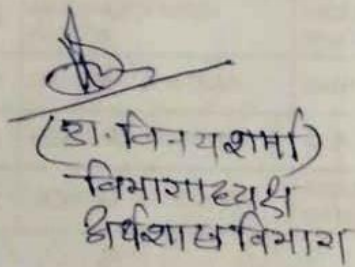 (डा. विनय शर्मा)
विभागाध्यक्ष
अर्थशास्त्र विभाग